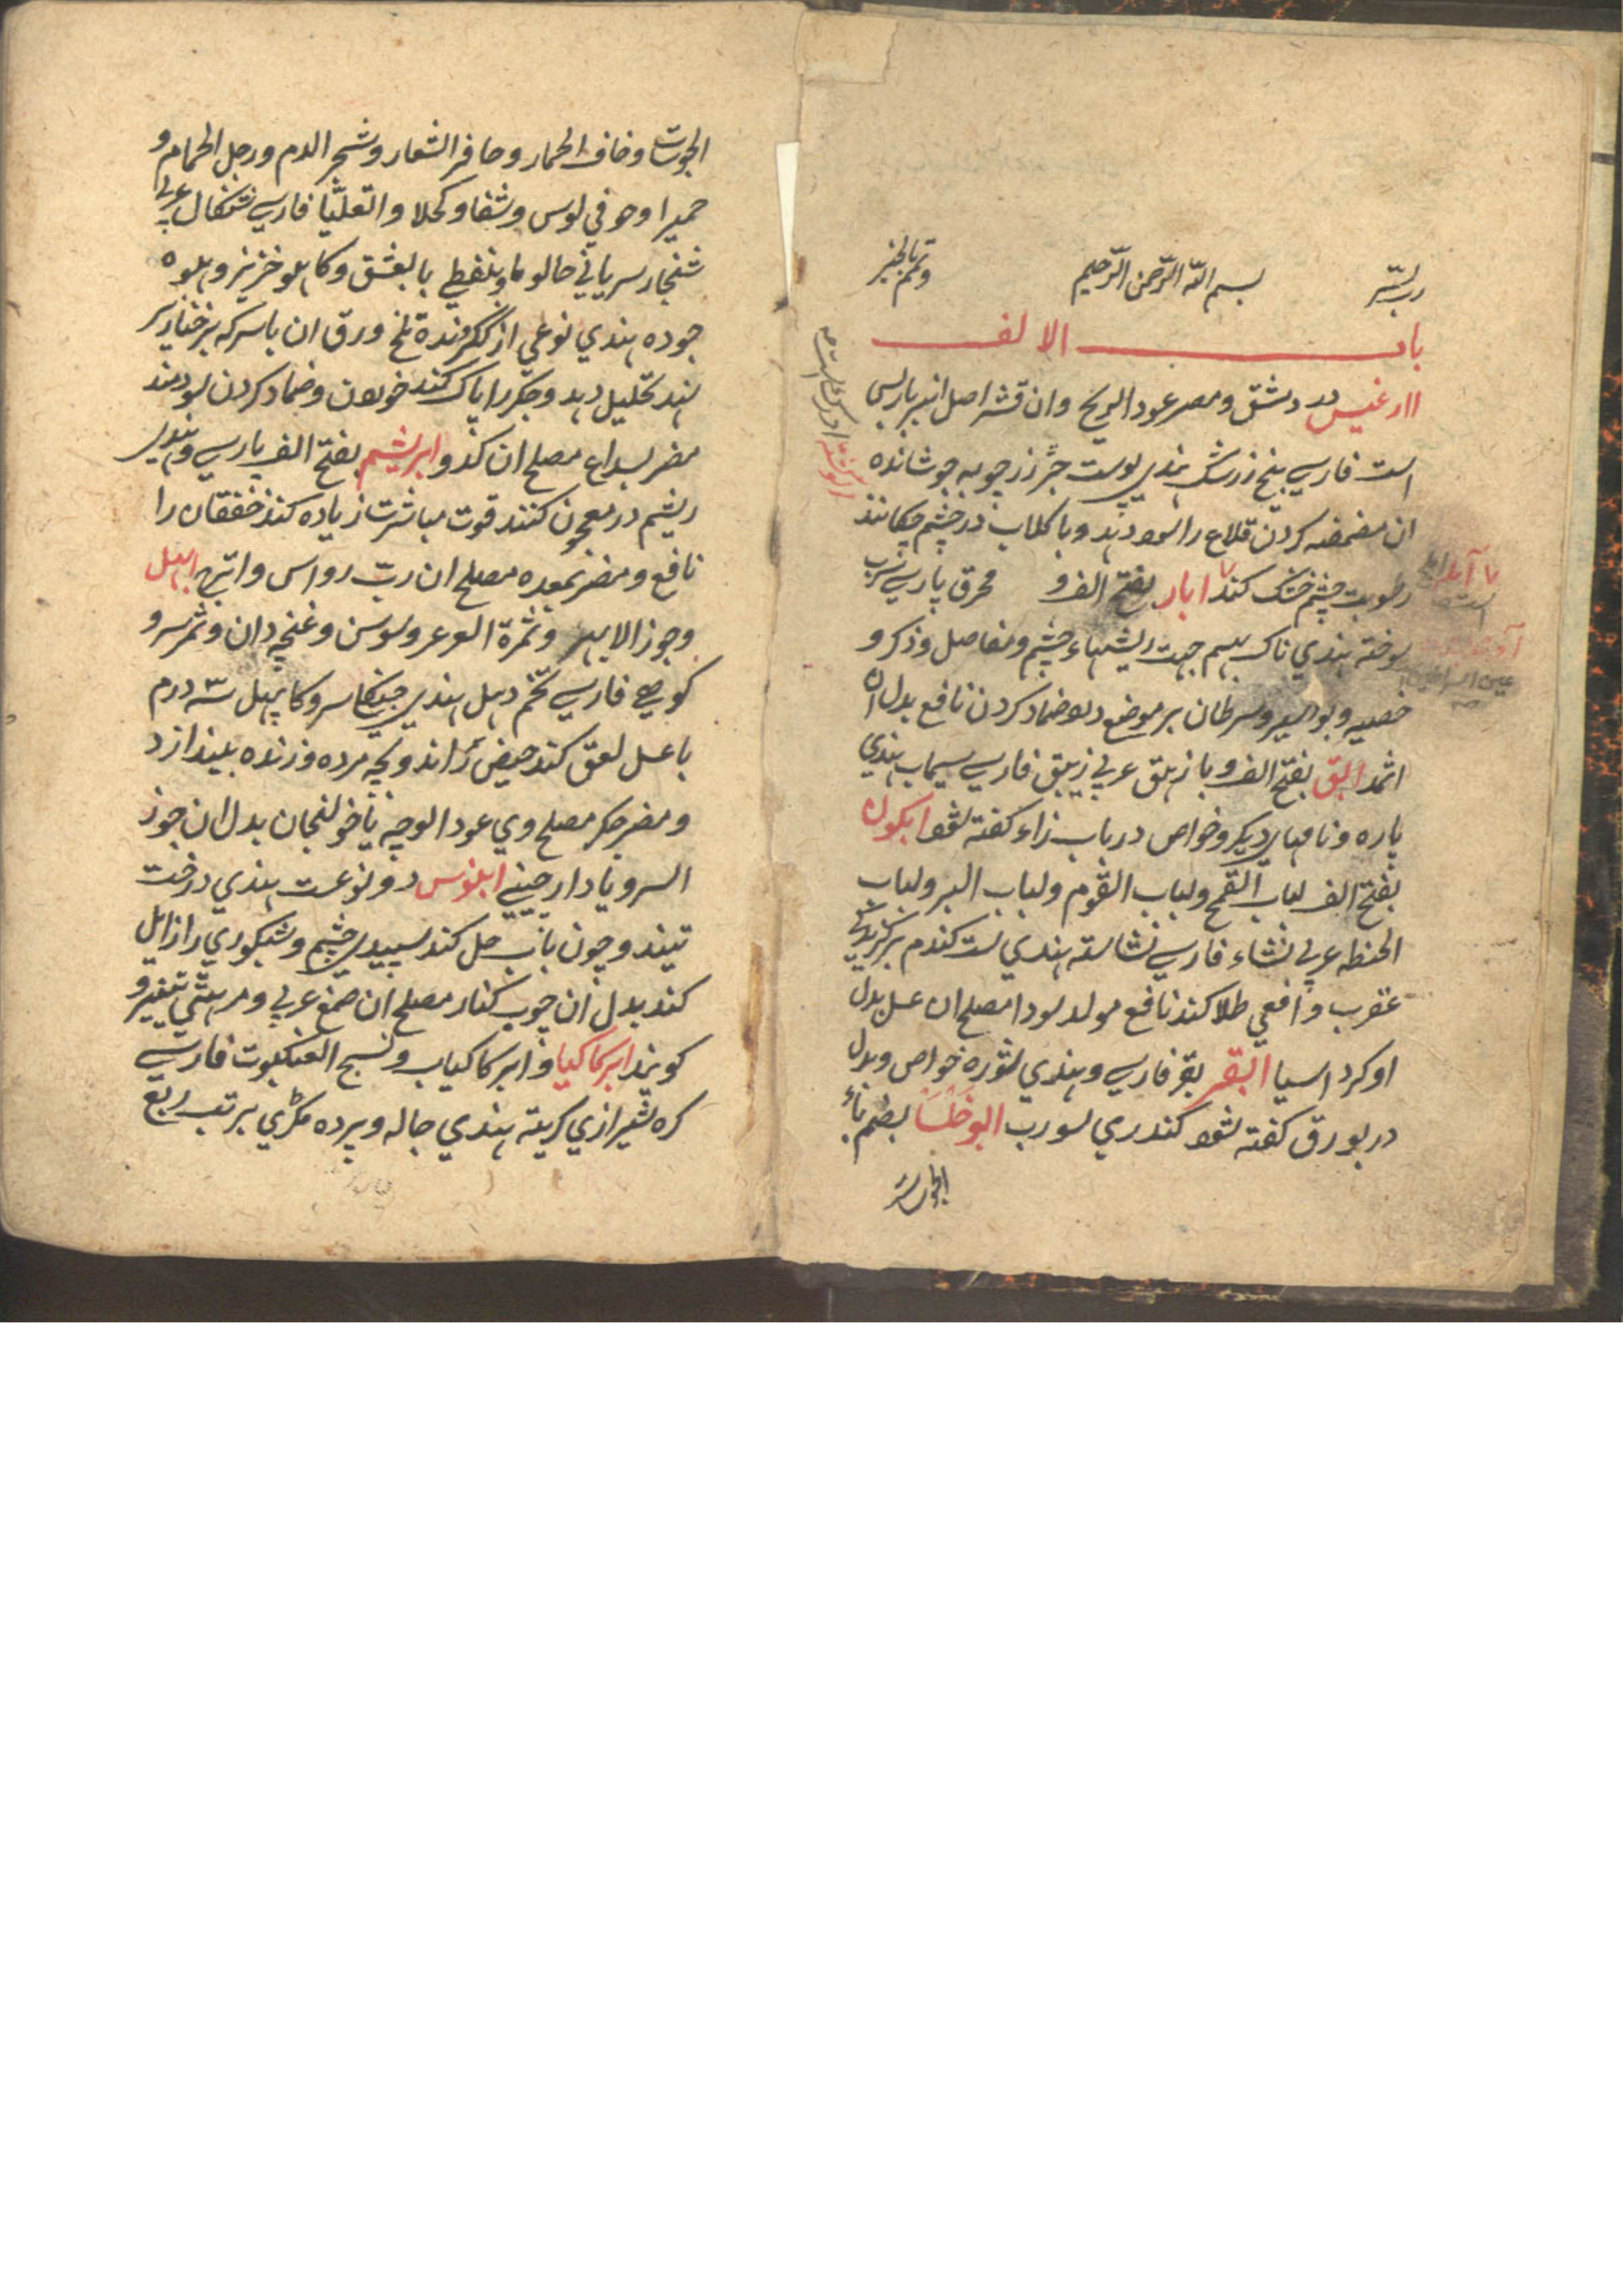 رب یسّر بسم الله الرّحمن الرّحیم وتمم بالخیر
باب الالف
اارغیس در دمشق ومصر عود الریح وان قشر اصل انبرباریس
است فارسی بیخ زرشک هندی پوست جر زرجوبه جوشانده
ان مضمضه کردن قلاع را سود دهد وبا کلاب در چشم چکانند
رطوبت چشم خشک کند ابار بفتح الف و محرق پارسی سرب
سوخته هندی ناک بهسم جهت ریشهاء چشم ومفاصل وذکر و
خصیه وبواسیر وسرطان بر موضع دلا ضماد کردن نافع بدل ان
اثمد ابق بفتح الف وبا زیلق عربی زیبق فارسی سیماب هندی
پاره ونامهای دیکر وخواص در باب زاء کفته شود ابکون
بفتح الف لباب القمح ولباب القوم ولباب البر ولباب
الحنطه عربی نشاء فارسی نشاسته هندی ست کندم بر کزیدکی
عقرب وافعی طلا کند نافع مولد سودا مصلح ان عسل بدل
او کرد اسیا ابقر بقر فارسی وهندی شوره خواص وبدل
در بورق کفته شود کندری سورب ابوخلسا بضم باء
الجوسات
الجوسات وخاف الحمار وحافر الشعار وشجر الدم ورجل الحمام و
حمیرا وحوفی لوس وشفا وکحلا واتعلیا فارسی شنکال عربی
شنجار سریانی حالوما وبنفطی بالعشق وکاهلو خریز وهلوه
جوده هندی نوعی از ککرونده تلخ ورق ان با سرکه بر خنازیر
نهند تحلیل دهد وجکر را پاک کند خوردن وضماد کردن سودمند
مضر بصداع مصلح ان کدو ابریشم بفتح الف پارسی وهندی
ریشم در معجون کنند قوت مباشرت زیاده کند خفقان را
نافع ومضر بمعده مصلح ان ربّ رواس واترج ابهل
وجوز الابهر وثمرة العرعر وسوسن وغنچه دان وثمر سرو
کوهی فارسی تخم دهل هندی جینکا سرو کا پهل سه درم
با عسل لعق کند حیض براند وبچه مرده وزنده بیندازد
ومضر جکر مصلح وی عود الوجه یا خولنجان بدل ان جوز
السرو یا دارچینی ابنوس دو نوعست هندی درخت
تیندو چون باب حل کند سپیدی چشم وشبکوری را زایل
کند بدل ان چوب کنار مصلح ان صمغ عربی ومرهتی تیفیرو
کویند ابرکاکیا وابرکاکیاب ونسج العنکبوت فارسی
کره شیرازی کریته هندی جاله وپرده مکڑی بر تب ربع